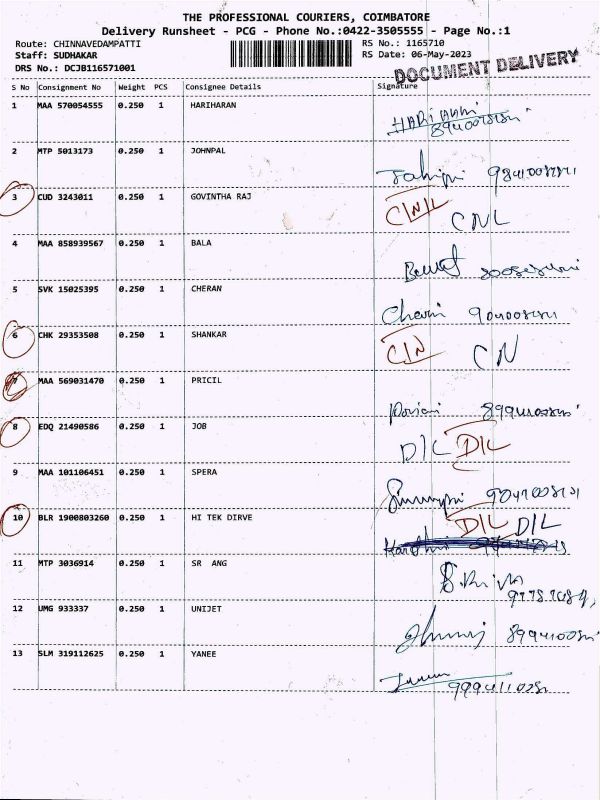 THE PROFESSIONAL COURIERS, COIMBATORE
Delivery Runsheet - PCG - Phone No.:0422-3505555 - Page No.:1
Route: CHINNAVEDAMPATTI RS No.: 1165710
Staff: SUDHAKAR RS Date: 06-May-2023
DRS No.: DCJB116571001 DOCUMENT DELIVERY
S No Consignment No Weight PCS Consignee Details Signature
1 MAA 570054555 0.250 1 HARIHARAN
2 MTP 5013173 0.250 1 JOHNPAL
3 CUD 3243011 0.250 1 GOVINTHA RAJ CNL
4 MAA 858939567 0.250 1 BALA
5 SVK 15025395 0.250 1 CHERAN
6 CHK 29353508 0.250 1 SHANKAR CN
7 MAA 569031470 0.250 1 PRICIL
8 EDQ 21490586 0.250 1 JOB D/L D/L
9 MAA 101106451 0.250 1 SPERA
10 BLR 1900803260 0.250 1 HI TEK DIRVE D/L D/L
11 MTP 3036914 0.250 1 SR ANG
12 UMG 933337 0.250 1 UNIJET
13 SLM 319112625 0.250 1 YANEE